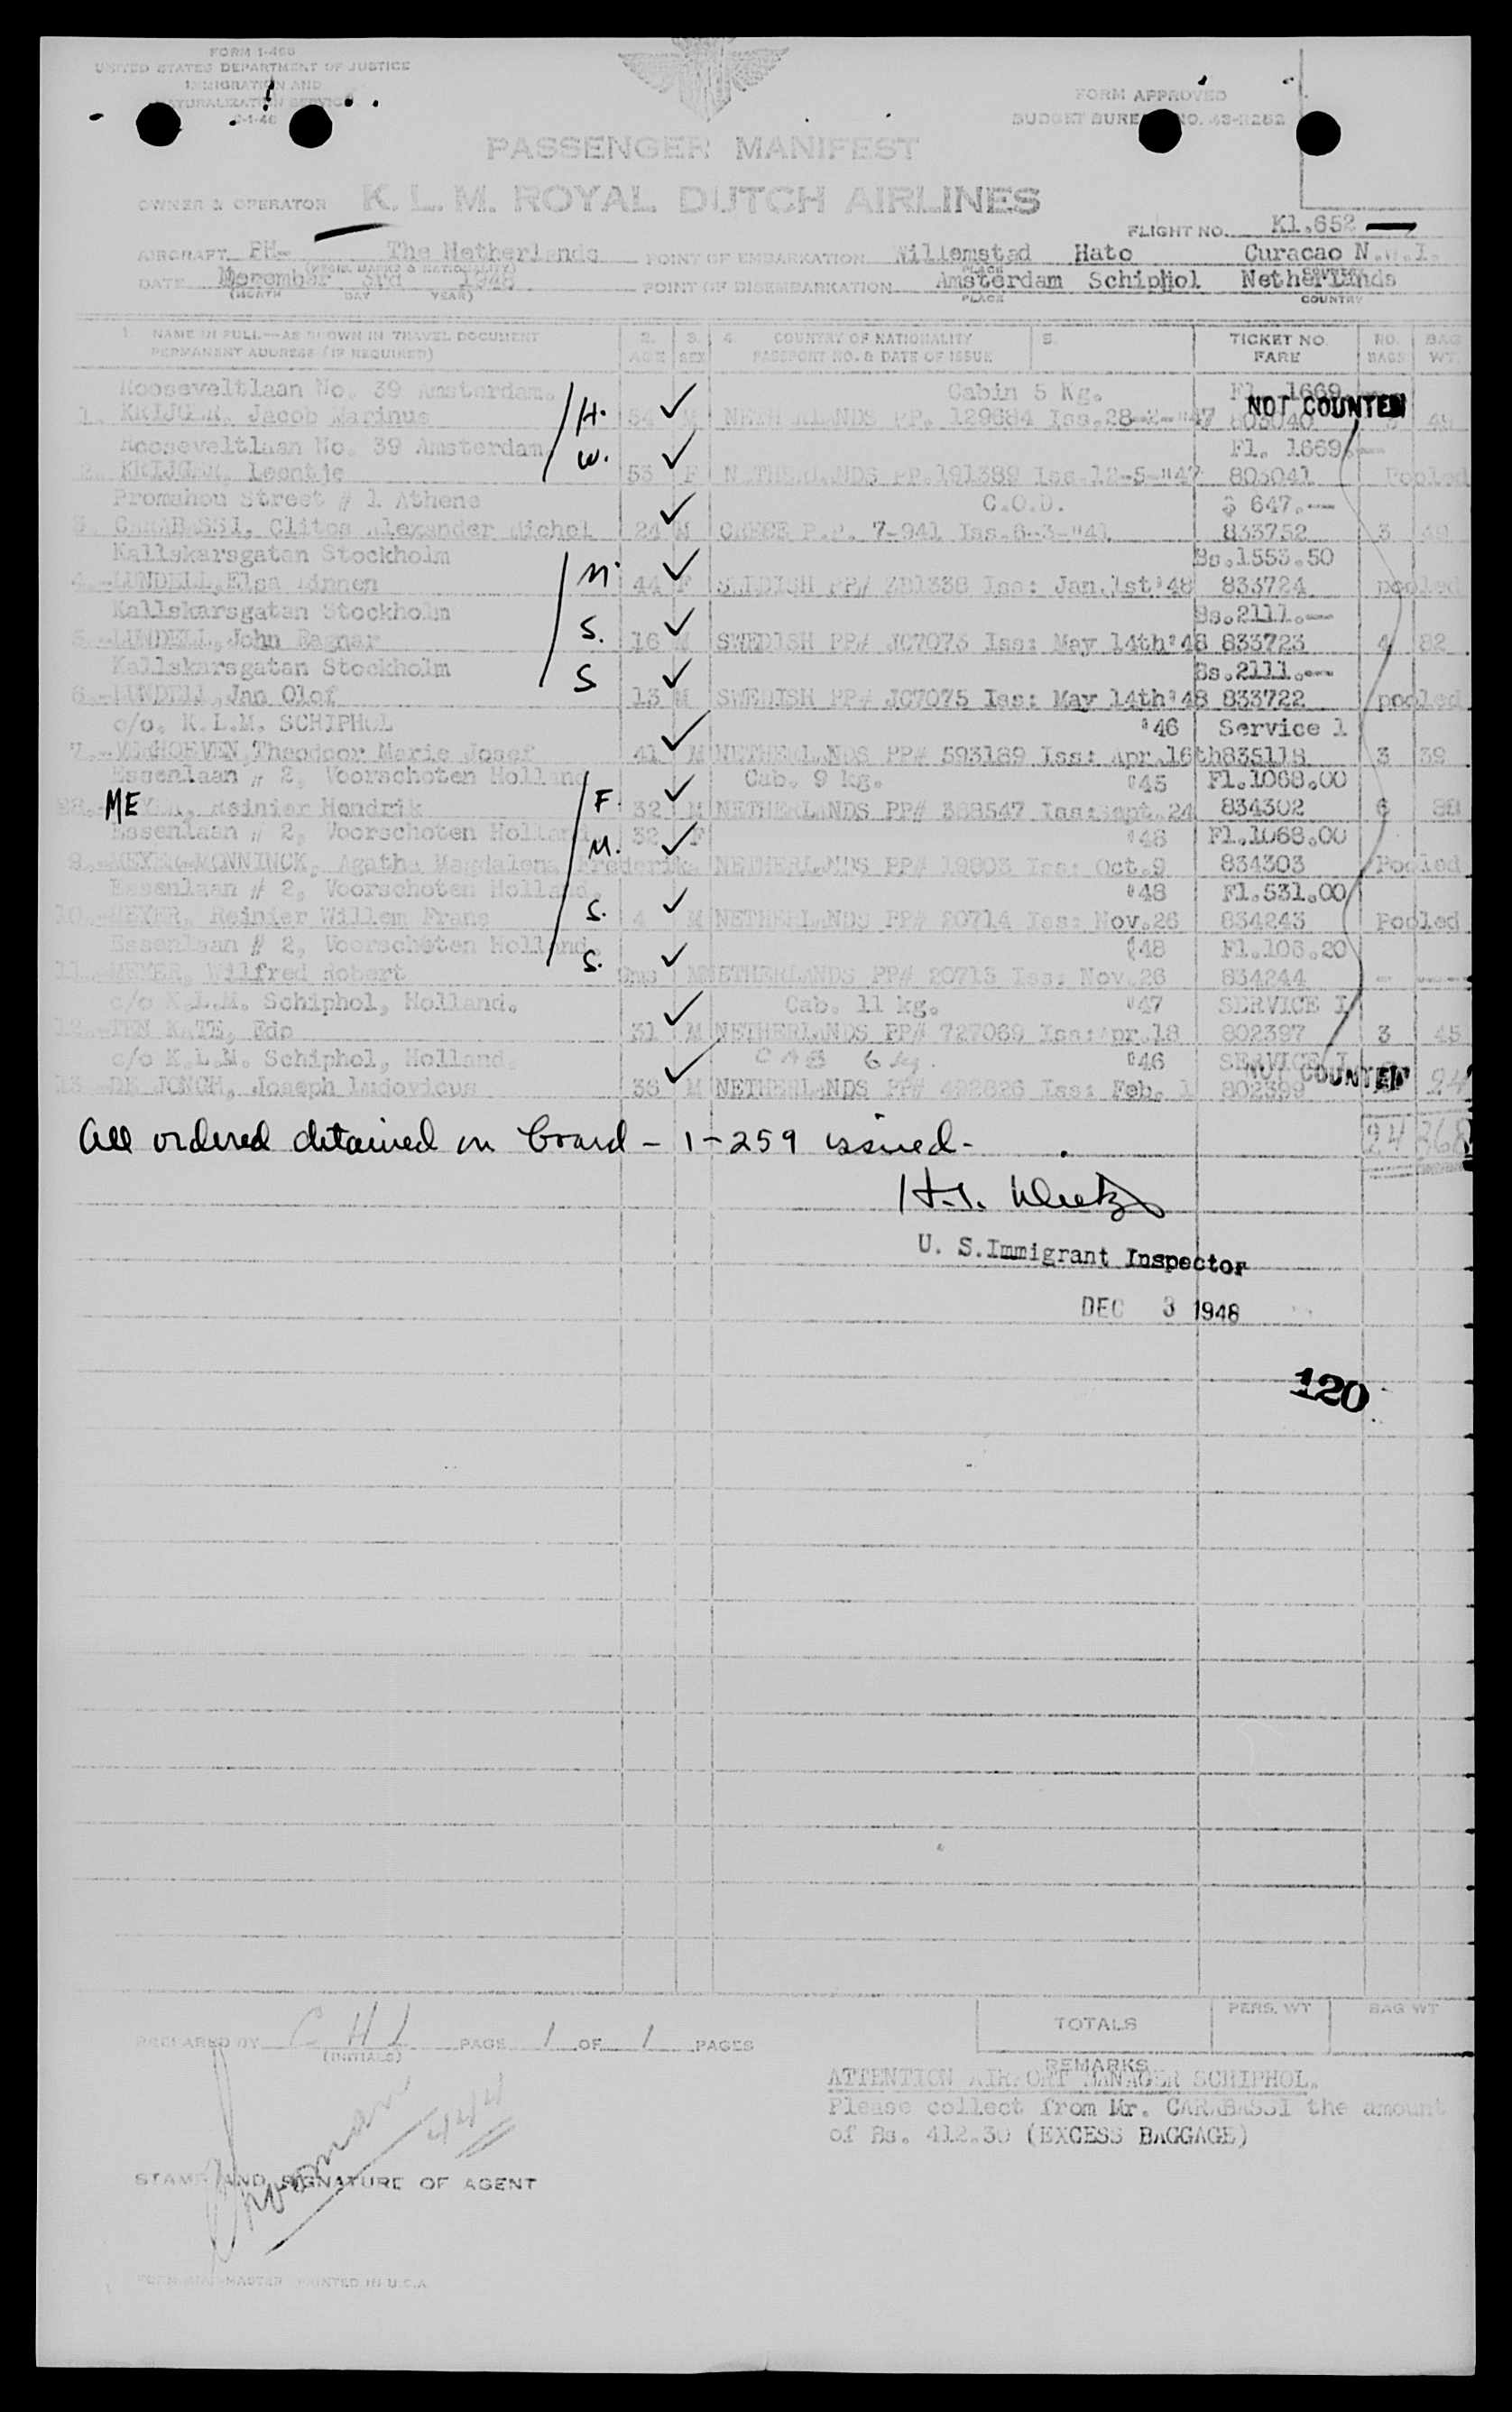 FORM I-466
UNITED STATES DEPARTMENT OF JUSTICE
IMMIGRATION AND
NATURALIZATION SERVICE
FORM APPROVED
BUDGET BUREAU NO. 43-R252
PASSENGER MANIFEST
OWNER & OPERATOR K. L. M. ROYAL DUTCH AIRLINES
FLIGHT NO. Kl.652
AIRCRAFT PH- The Netherlands POINT OF EMBARKATION Willemstad Hato Curacao N.W.I.
(REGIS. MARKS & NATIONALITY) PLACE COUNTRY
DATE December 3rd 1948 POINT OF DISEMBARKATION Amsterdam Schiphol Netherlands
(MONTH DAY YEAR) PLACE COUNTRY
1. NAME IN FULL—AS SHOWN IN TRAVEL DOCUMENT 2. 3. 4. COUNTRY OF NATIONALITY 5. TICKET NO. NO. BAG
PERMANENT ADDRESS (IF REQUIRED) AGE SEX PASSPORT NO. & DATE OF ISSUE FARE BAGS WT.
Rooseveltlaan No. 39 Amsterdam. Cabin 5 Kg. Fl. 1669.--
NOT COUNTED
1. KRIJGER, Jacob Marinus H. 54 M NETHERLANDS PP. 129684 Iss.28-2-"47 803040
Rooseveltlaan No. 39 Amsterdam Fl. 1669.--
2. KRIJGER, Leentje W. 53 F NETHERLANDS PP.191389 Iss.12-5-"47 803041 Pooled
Promahou Street # 1 Athene C.O.D. $ 647.--
3. CARABASSI, Clitos Alexander Michel 24 M GREECE P.P. 7-941 Iss.6-3-"41 833752 3 49
Kallskarsgatan Stockholm Bs.1553.50
4.-LUNDELL,Elsa Linnen M. 44 F SWEDISH PP# ZB1338 Iss: Jan.1st'48 833724 pooled
Kallskarsgatan Stockholm Bs.2111.--
5.-LUNDELL,John Ragnar S. 16 M SWEDISH PP# JC7073 Iss: May 14th'48 833723 4 82
Kallskarsgatan Stockholm Bs.2111.--
6.-LUNDELL,Jan Olof S 13 M SWEDISH PP# JC7075 Iss: May 14th'48 833722 pooled
c/o. K.L.M. SCHIPHOL '46 Service 1
7.-VERHOEVEN,Theodoor Marie Josef 41 M NETHERLANDS PP# 593189 Iss: Apr.16th 835118 3 39
Essenlaan # 2, Voorschoten Holland Cab. 9 kg. '45 Fl.1068.00
8.-MEYER, Reinier Hendrik F. 32 M NETHERLANDS PP# 368547 Iss:Sept.24 834302 6 88
Essenlaan # 2, Voorschoten Holland 32 F '48 Fl.1068.00
9.-MEYER-MONNINCK, Agatha Magdalena Frederika M. NETHERLANDS PP# 19803 Iss: Oct.9 834303 Pooled
Essenlaan # 2, Voorschoten Holland. '48 Fl.531.00
10.-MEYER, Reinier Willem Frans S. 4 M NETHERLANDS PP# 20714 Iss: Nov.26 834243 Pooled
Essenlaan # 2, Voorschoten Holland. '48 Fl.106.20
11.-MEYER, Wilfred Robert S. 9ms M NETHERLANDS PP# 20713 Iss: Nov.26 834244 - ---
c/o K.L.M. Schiphol, Holland. Cab. 11 kg. '47 SERVICE I
12.-TEN KATE, Edo 31 M NETHERLANDS PP# 727069 Iss:Apr.18 802397 3 45
c/o K.L.M. Schiphol, Holland. CAB 6 kg. '46 SERVICE I
NOT COUNTED
13.-DE JONGH, Joseph Ludovicus 36 M NETHERLANDS PP# 492826 Iss: Feb. 1 802399 24
All ordered detained on board - I-259 issued- 24 368
U. S. Immigrant Inspector
DEC 3 1948
120
TOTALS PERS. WT BAG WT
PREPARED BY C H L PAGE 1 OF 1 PAGES
(INITIALS)
REMARKS
ATTENTION AIRPORT MANAGER SCHIPHOL.
Please collect from Mr. CARABASSI the amount
of Bs. 412.30 (EXCESS BAGGAGE)
STAMP AND SIGNATURE OF AGENT
PRINTED IN U.S.A.